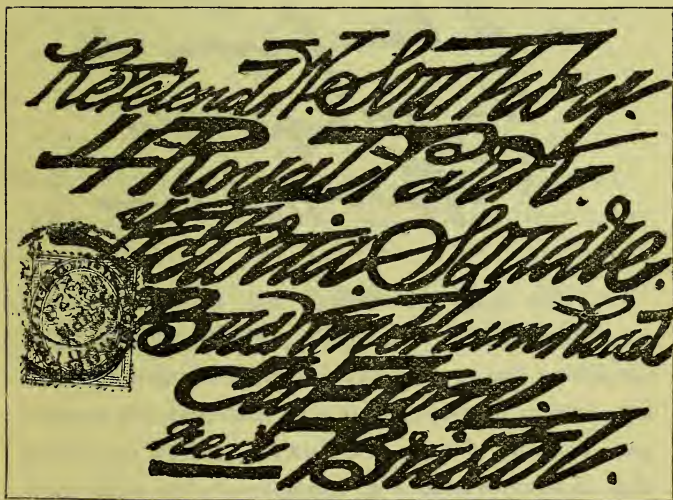 Reverend W. Southby.
4 Royal Park.
Victoria Square.
Buckingham Road
Clifton.
near Bristol.